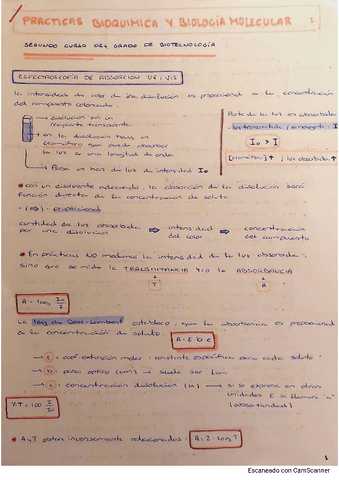 PRACTICAS BIOQUIMICA Y BIOLOGÍA MOLECULAR 1
SEGUNDO CURSO DEL GRADO DE BIOTECNOLOGÍA
ESPECTROSCOPÍA DE ABSORCIÓN UV / VIS
la intensidad de color de una disolución es proporcional a la concentración
del compuesto coloreado.
→ disolución en un
recipiente transparente
→ en la disolución hay un
cromóforo que puede absorber
la luz a una longitud de onda
→ Pasa un haz de luz de intensidad Io
Parte de la luz es absorbida
I0 > I
[cromóforo] ↑ ; luz absorbida ↑
* con un disolvente adecuado, la absorción de la disolución será
función directa de la concentración de soluto.
proporcional
cantidad de luz absorbida ⇒ intensidad ⇒ concentración
por una disolución del color del compuesto
* En prácticas NO medimos la intensidad de la luz absorbida,
sino que se mide la TRANSMITANCIA y/o la ABSORBANCIA
T A
A = log I0/I
La ley de Beer-Lambert establece que la absorbancia es proporcional
a la concentración de soluto: A = ε b c
→ ε = coef extinción molar: constante específica para cada soluto
→ b = paso óptico (cm) → suele ser 1cm
→ c = concentración disolución (M) → si se expresa en otras
unidades ε se llamará "a"
(absortividad)
%T = 100 I/I0
* A y T están inversamente relacionados: A = 2 - log T
1
Escaneado con CamScanner